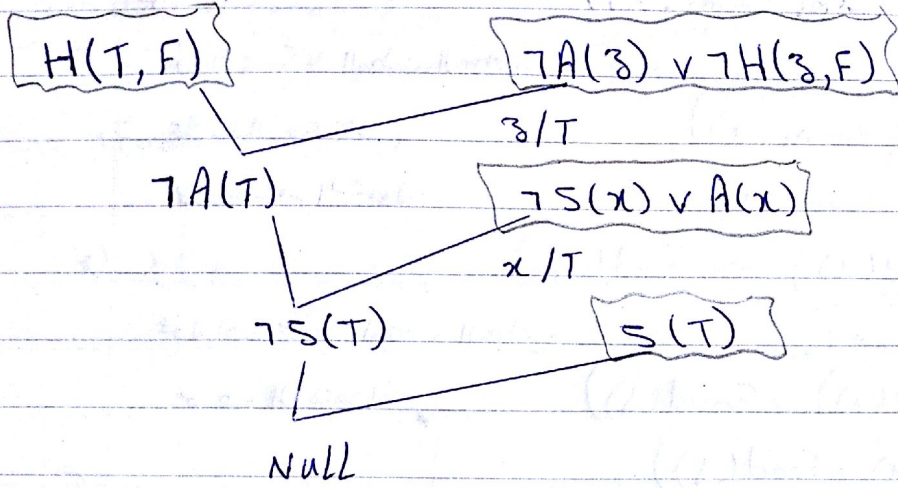 H(T,F) ¬A(z) ∨ ¬H(z,F)
z/T
¬A(T) ¬S(x) ∨ A(x)
x/T
¬S(T) S(T)
Null